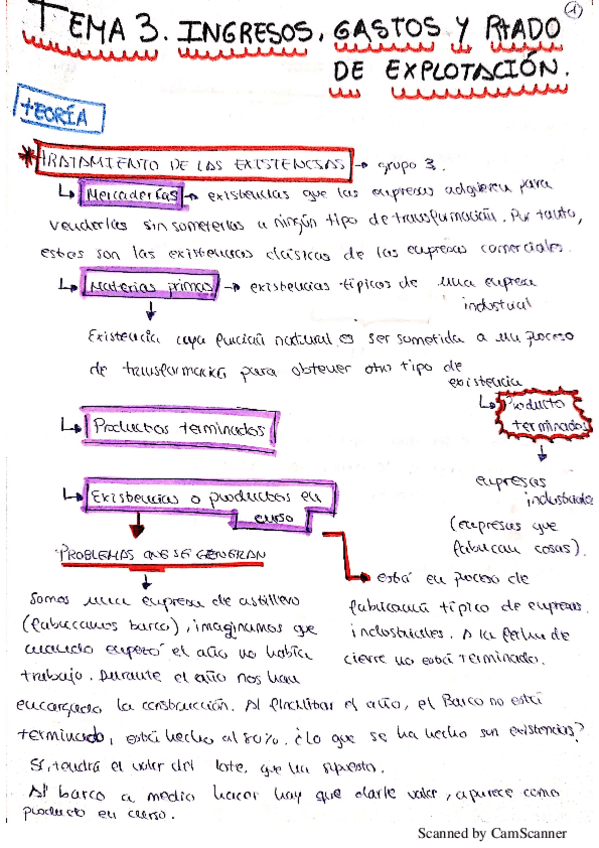 ①
TEMA 3. INGRESOS, GASTOS Y RTADO
DE EXPLOTACIÓN.
TEORÍA
* TRATAMIENTO DE LAS EXISTENCIAS → grupo 3.
↳ Mercaderías → existencias que las empresas adquieren para
venderlas sin someterlas a ningún tipo de transformación. Por tanto,
estas son las existencias clásicas de las empresas comerciales.
↳ Materias primas → existencias típicas de una empresa
industrial
Existencia cuya función natural es ser sometida a un proceso
de transformación para obtener otro tipo de
existencia
↳ Producto
terminados
↳ Productos terminados
empresas
industriales
(empresas que
fabrican cosas).
↳ Existencias o productos en
curso
PROBLEMAS QUE SE GENERAN
→ está en proceso de
fabricación típico de empresas
industriales. A la fecha de
cierre no está terminado.
Somos una empresa de astillero
(fabricamos barco), imaginamos que
cuando empezó el año no había
trabajo. Durante el año nos han
encargado la construcción. Al finalizar el año, el Barco no está
terminado, está hecho al 80%. ¿Lo que se ha hecho son existencias?
Sí, tendrá el valor del que ha supuesto.
Al barco a medio hacer hay que darle valor, aparece como
producto en curso.
Scanned by CamScanner